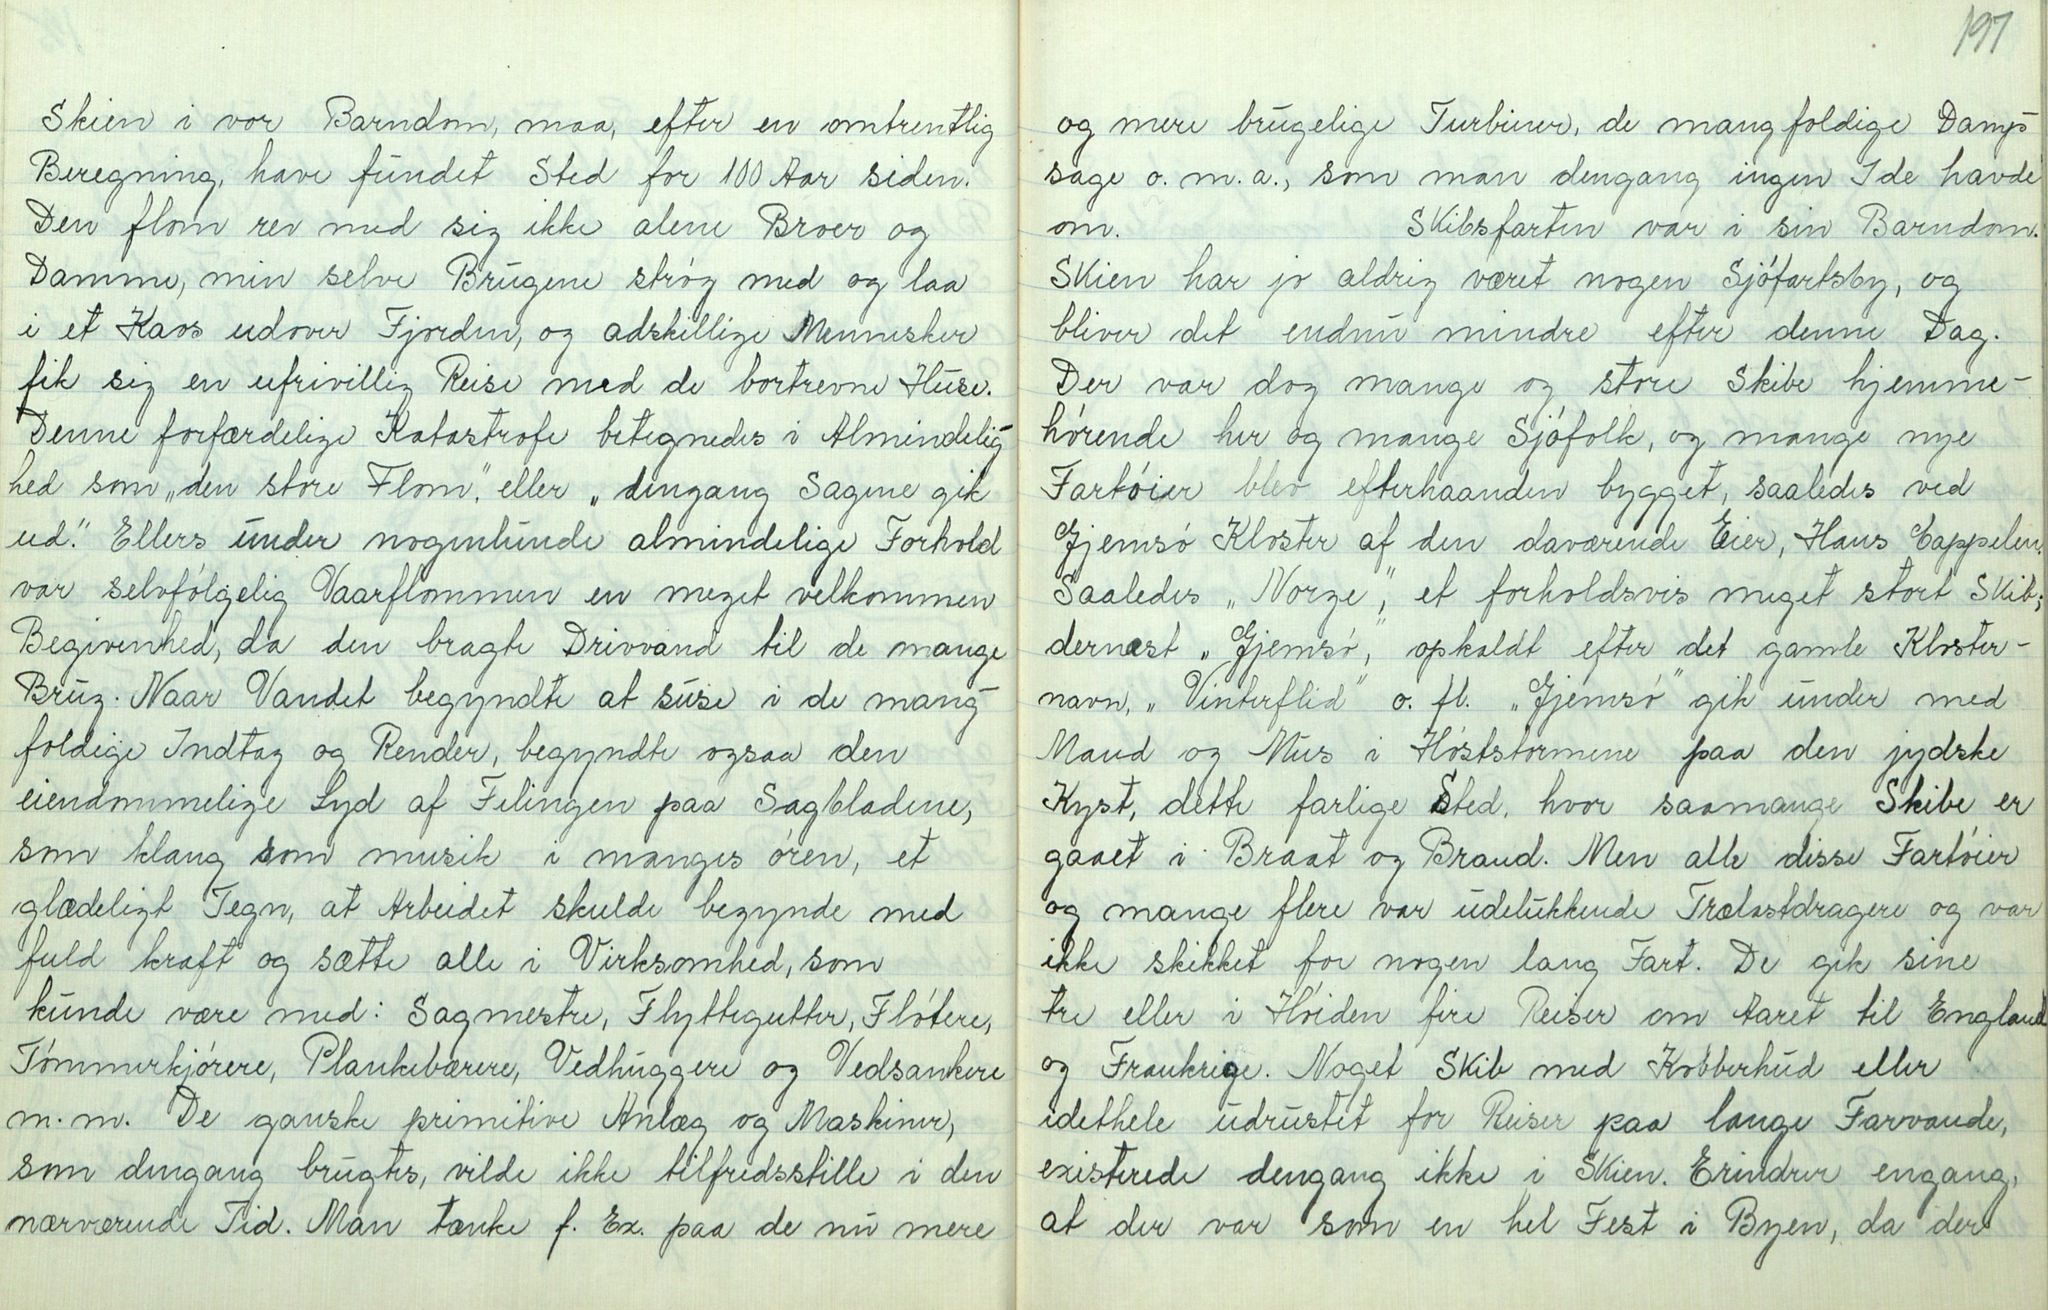 Skien i vor Barndom, maa, efter en omtrentlig
Beregning, have fundet Sted for 100 Aar siden.
Den flom rev med sig ikke alene Broer og
Damme, men selve Brugene strøg med og laa
i et Kaos udover Fjorden, og adskillige Mennesker
fik sig en ufrivillig Reise med de bortrevne Huse.
Denne forfærdelige Katastrofe betegnedes i Almindelig-
hed som „den store Flom", eller „dengang Sagene gik
ud." Ellers under nogenlunde almindelige Forhold
var selvfølgelig Vaarflommen en meget velkommen
Begivenhed, da den bragte Drivvand til de mange
Brug. Naar Vandet begyndte at suse i de mang-
foldige Indtag og Render, begyndte ogsaa den
eiendommelige Lyd af Filingen paa Sagbladene,
som klang som musik i manges ören, et
glædeligt Tegn, at Arbeidet skulde begynde med
fuld kraft og sætte alle i Virksomhed, som
kunde være med: Sagmestre, Flyttegutter, Fløtere,
Tømmerkjørere, Plankebærere, Vedhuggere og Vedsankere
m.m. De ganske primitive Anlæg og Maskiner,
som dengang brugtes, vilde ikke tilfredsstille i den
nærværende Tid. Man tænke f. Ex. paa de nu mere
197
og mere brugelige Turbiner, de mangfoldige Damp-
sage o.m.a., som man dengang ingen Ide havde
om. Skibsfarten var i sin Barndom.
Skien har jo aldrig været nogen Sjøfartsby, og
bliver det endnu mindre efter denne Dag.
Der var dog mange og store Skibe hjemme-
hørende her og mange Sjøfolk, og mange nye
Fartøier blev efterhaanden bygget, saaledes ved
Gjemsø Kloster af den daværende Eier, Hans Cappelen.
Saaledes „Norge", et forholdsvis meget stort Skib;
dernæst „Gjemsø", opkaldt efter det gamle Kloster-
navn, „Vinterflid" o. fl. „Gjemsø" gik under med
Mand og Mus i Høststormene paa den jydske
Kyst, dette farlige Sted, hvor saamange Skibe er
gaaet i Braat og Brand. Men alle disse Fartøier
og mange flere var udelukkende Trælastdragere og var
ikke skikket for nogen lang Fart. De gik sine
tre eller i Høiden fire Reiser om Aaret til England
og Frankrige. Noget Skib med Kobberhud eller
idethele udrustet for Reiser paa lange Farvande,
existerede dengang ikke i Skien. Erindrer engang,
at der var som en hel Fest i Byen, da der